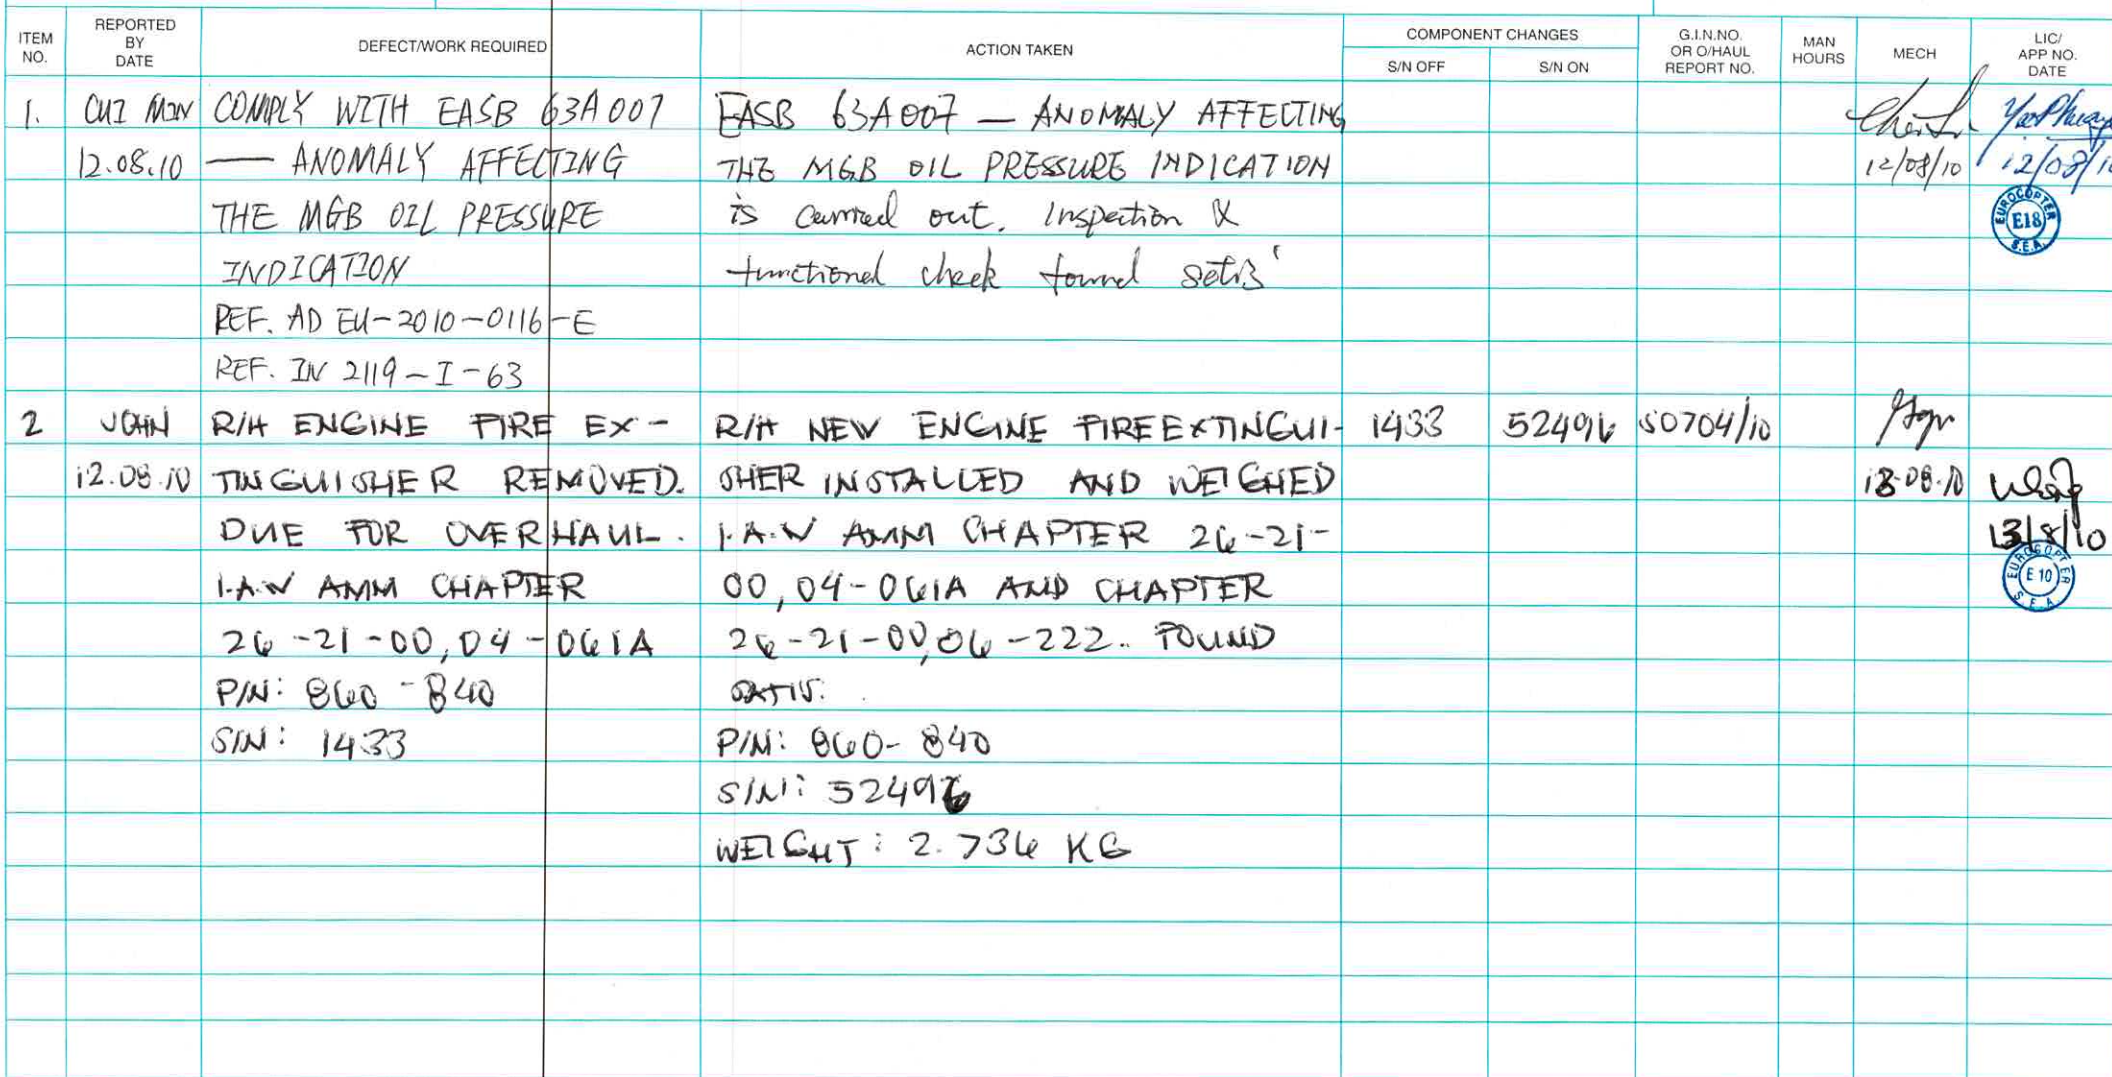 ITEM NO.
REPORTED BY DATE
DEFECT/WORK REQUIRED
ACTION TAKEN
COMPONENT CHANGES
S/N OFF
S/N ON
G.I.N.NO. OR O/HAUL REPORT NO.
MAN HOURS
MECH
LIC/ APP NO. DATE
1.
CUI MIN
12.08.10
COMPLY WITH EASB 63A007
— ANOMALY AFFECTING
THE MGB OIL PRESSURE
INDICATION
REF. AD EU-2010-0116-E
REF. IN 2119-I-63
EASB 63A007 — ANOMALY AFFECTING
THE MGB OIL PRESSURE INDICATION
is carried out. Inspection &
functional check found satis'
12/08/10
12/08/10
EUROCOPTER
E18
S.E.A.
2
JOHN
12.08.10
R/H ENGINE FIRE EX-
TINGUISHER REMOVED.
DUE FOR OVERHAUL.
I.A.W AMM CHAPTER
26-21-00, 04-061A
P/N: 860-840
S/N: 1433
R/H NEW ENGINE FIRE EXTINGUI-
SHER INSTALLED AND WEIGHED
I.A.W AMM CHAPTER 26-21-
00, 04-061A AND CHAPTER
26-21-00, 06-222. FOUND
SATIS.
P/N: 860-840
S/N: 52496
WEIGHT: 2.736 KG
1433
52496
50704/10
13.08.10
13/8/10
EUROCOPTER
E 10
S.E.A.